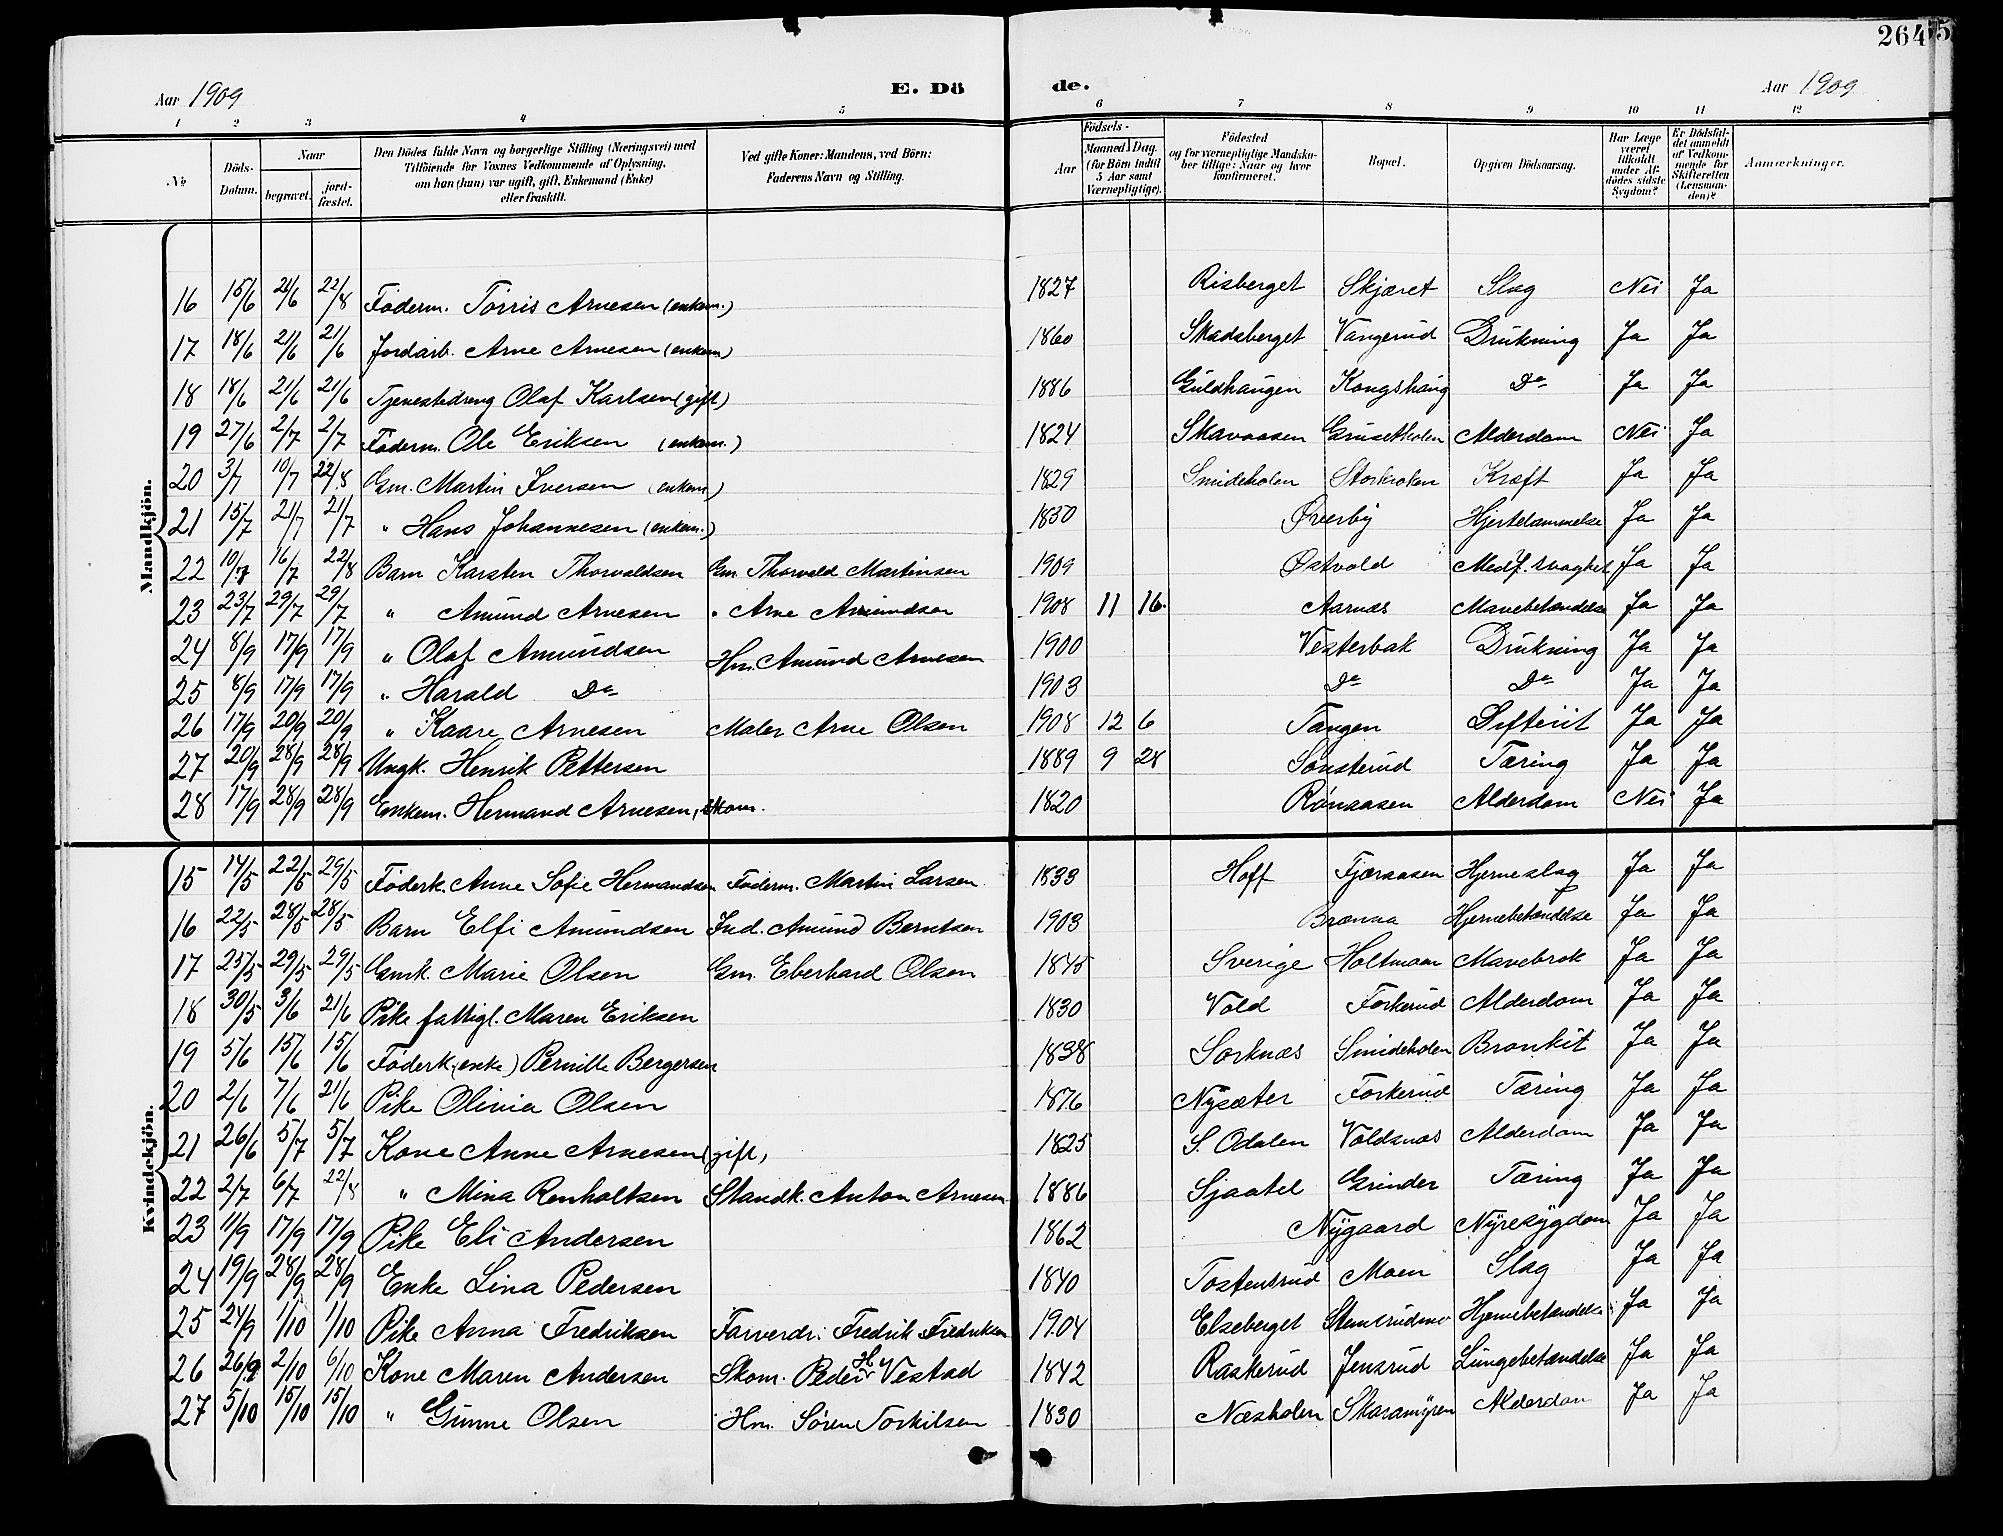 264
5
Aar 1909
E. Dö
de.
Aar 1909
1 2 3 4 5 6 7 8 9 10 11 12
№
Döds-Datum.
Naar
begravet.
jord-fæstet.
Den Dödes fulde Navn og borgerlige Stilling (Næringsvei) med
Tilföiende for Voxnes Vedkommende af Oplysning,
om han (hun) var ugift, gift, Enkemand (Enke)
eller fraskilt.
Ved gifte Koner: Mandens, ved Börn:
Faderens Navn og Stilling.
Födsels-
Aar
Maaned Dag.
(for Börn indtil
5 Aar samt
Værnepligtige).
Födested
og for værnepligtige Mandska-
ber tillige: Naar og hvor
konfirmeret.
Bopæl.
Opgiven Dödsaarsag.
Har Læge
været
tilkaldt
under Af-
dödes sidste
Sygdom?
Er Dödsfal-
det anmeldt
af Vedkom-
mende for
Skifteretten
(Lensman-
den)?
Anmærkninger.
Mandkjön.
16 15/6 21/6 22/8 Föderm. Torris Arnesen (enkem.) 1827 Risberget Skjæret Slag Nei Ja
17 18/6 21/6 21/6 Jordarb. Arne Arnesen (enkem) 1860 Skadsberget Vangerud Drukning Ja Ja
18 18/6 21/6 21/6 Tjenestedreng Olaf Karlsen (gift) 1886 Guldhaugen Kongshaug Do Ja Ja
19 27/6 2/7 2/7 Föderm. Ole Eriksen (enkem.) 1824 Skavaasen Grusetholen Alderdom Nei Ja
20 3/7 10/7 22/8 Gm. Martin Iversen (enkem) 1829 Smideholen Storkroken Kræft Ja Ja
21 15/7 21/7 21/7 " Hans Johannesen (enkem.) 1830 Øverby Hjertelammelse Ja Ja
22 10/7 16/7 22/8 Barn Karsten Thorvaldsen Gm. Thorvald Martinsen 1909 Østvold Medf. svaghet Ja Ja
23 23/7 29/7 29/7 " Amund Arnesen " Arne Amundsen 1908 11 16. Aarnæs Mavebetændelse Ja Ja
24 8/9 17/9 17/9 " Olaf Amundsen Hm. Amund Arnesen 1900 Vesterbak Drukning Ja Ja
25 8/9 17/9 17/9 " Harald Do 1903 Do Do Ja Ja
26 17/9 20/9 20/9 " Kaare Arnesen Maler Arne Olsen 1908 12 6 Tangen Difterit Ja Ja
27 20/9 28/9 28/9 Ungk. Henrik Pettersen 1889 9 28 Sønsterud Tæring Ja Ja
28 17/9 28/9 28/9 Enkem. Hermand Arnesen, Skom. 1820 Rønaasen Alderdom Nei Ja
Kvindekjön.
15 14/5 22/5 29/5 Föderk. Anne Sofie Hermandsen Föderm. Martin Larsen 1833 Hoff Fjæraasen Hjerneslag Ja Ja
16 22/5 28/5 28/5 Barn Elfi Amundsen Ind. Amund Berntsen 1903 Brænna Hjernebetændelse Ja Ja
17 25/5 29/5 29/5 Gmk. Marie Olsen Gm. Eberhard Olsen 1845 Sverige Holtmoen Mavebrok Ja Ja
18 30/5 3/6 21/6 Pike fattigl. Maren Eriksen 1830 Vold Forkerud Alderdom Ja Ja
19 5/6 15/6 15/6 Föderk. (enke) Pernille Bergersen 1838 Sorknæs Smideholen Bronkit Ja Ja
20 2/6 7/6 21/6 Pike Olivia Olsen 1876 Nysæter Forkerud Tæring Ja Ja
21 26/6 5/7 5/7 Kone Anne Arnesen (gift) 1825 S. Odalen Voldsnæs Alderdom Ja Ja
22 2/7 6/7 22/8 " Mina Renholtsen Standk. Anton Arnesen 1886 Sjaatel Grinder Tæring Ja Ja
23 11/9 17/9 17/9 Pike Eli Andersen 1862 Nygaard Nyresygdom Ja Ja
24 19/9 28/9 28/9 Enke Lina Pedersen 1840 Tostensrud Moen Slag Ja Ja
25 24/9 1/10 1/10 Pike Anna Fredriksen Farverdr. Fredrik Fredriksen 1904 Elseberget Stemsrudmo Hjernebetændelse Ja Ja
26 26/9 2/10 6/10 Kone Maren Andersen Skom. Peder H. Vestad 1842 Raskerud Jensrud Lungebetændelse Ja Ja
27 5/10 15/10 15/10 " Gunne Olsen Hm. Søren Torkilsen 1830 Næsholen Skaramyren Alderdom Ja Ja